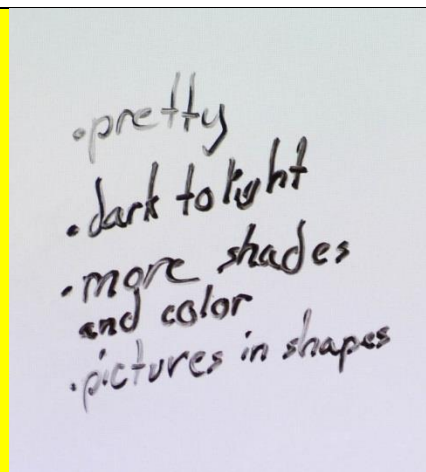 •pretty
•dark to light
•more shades
and color
•pictures in shapes